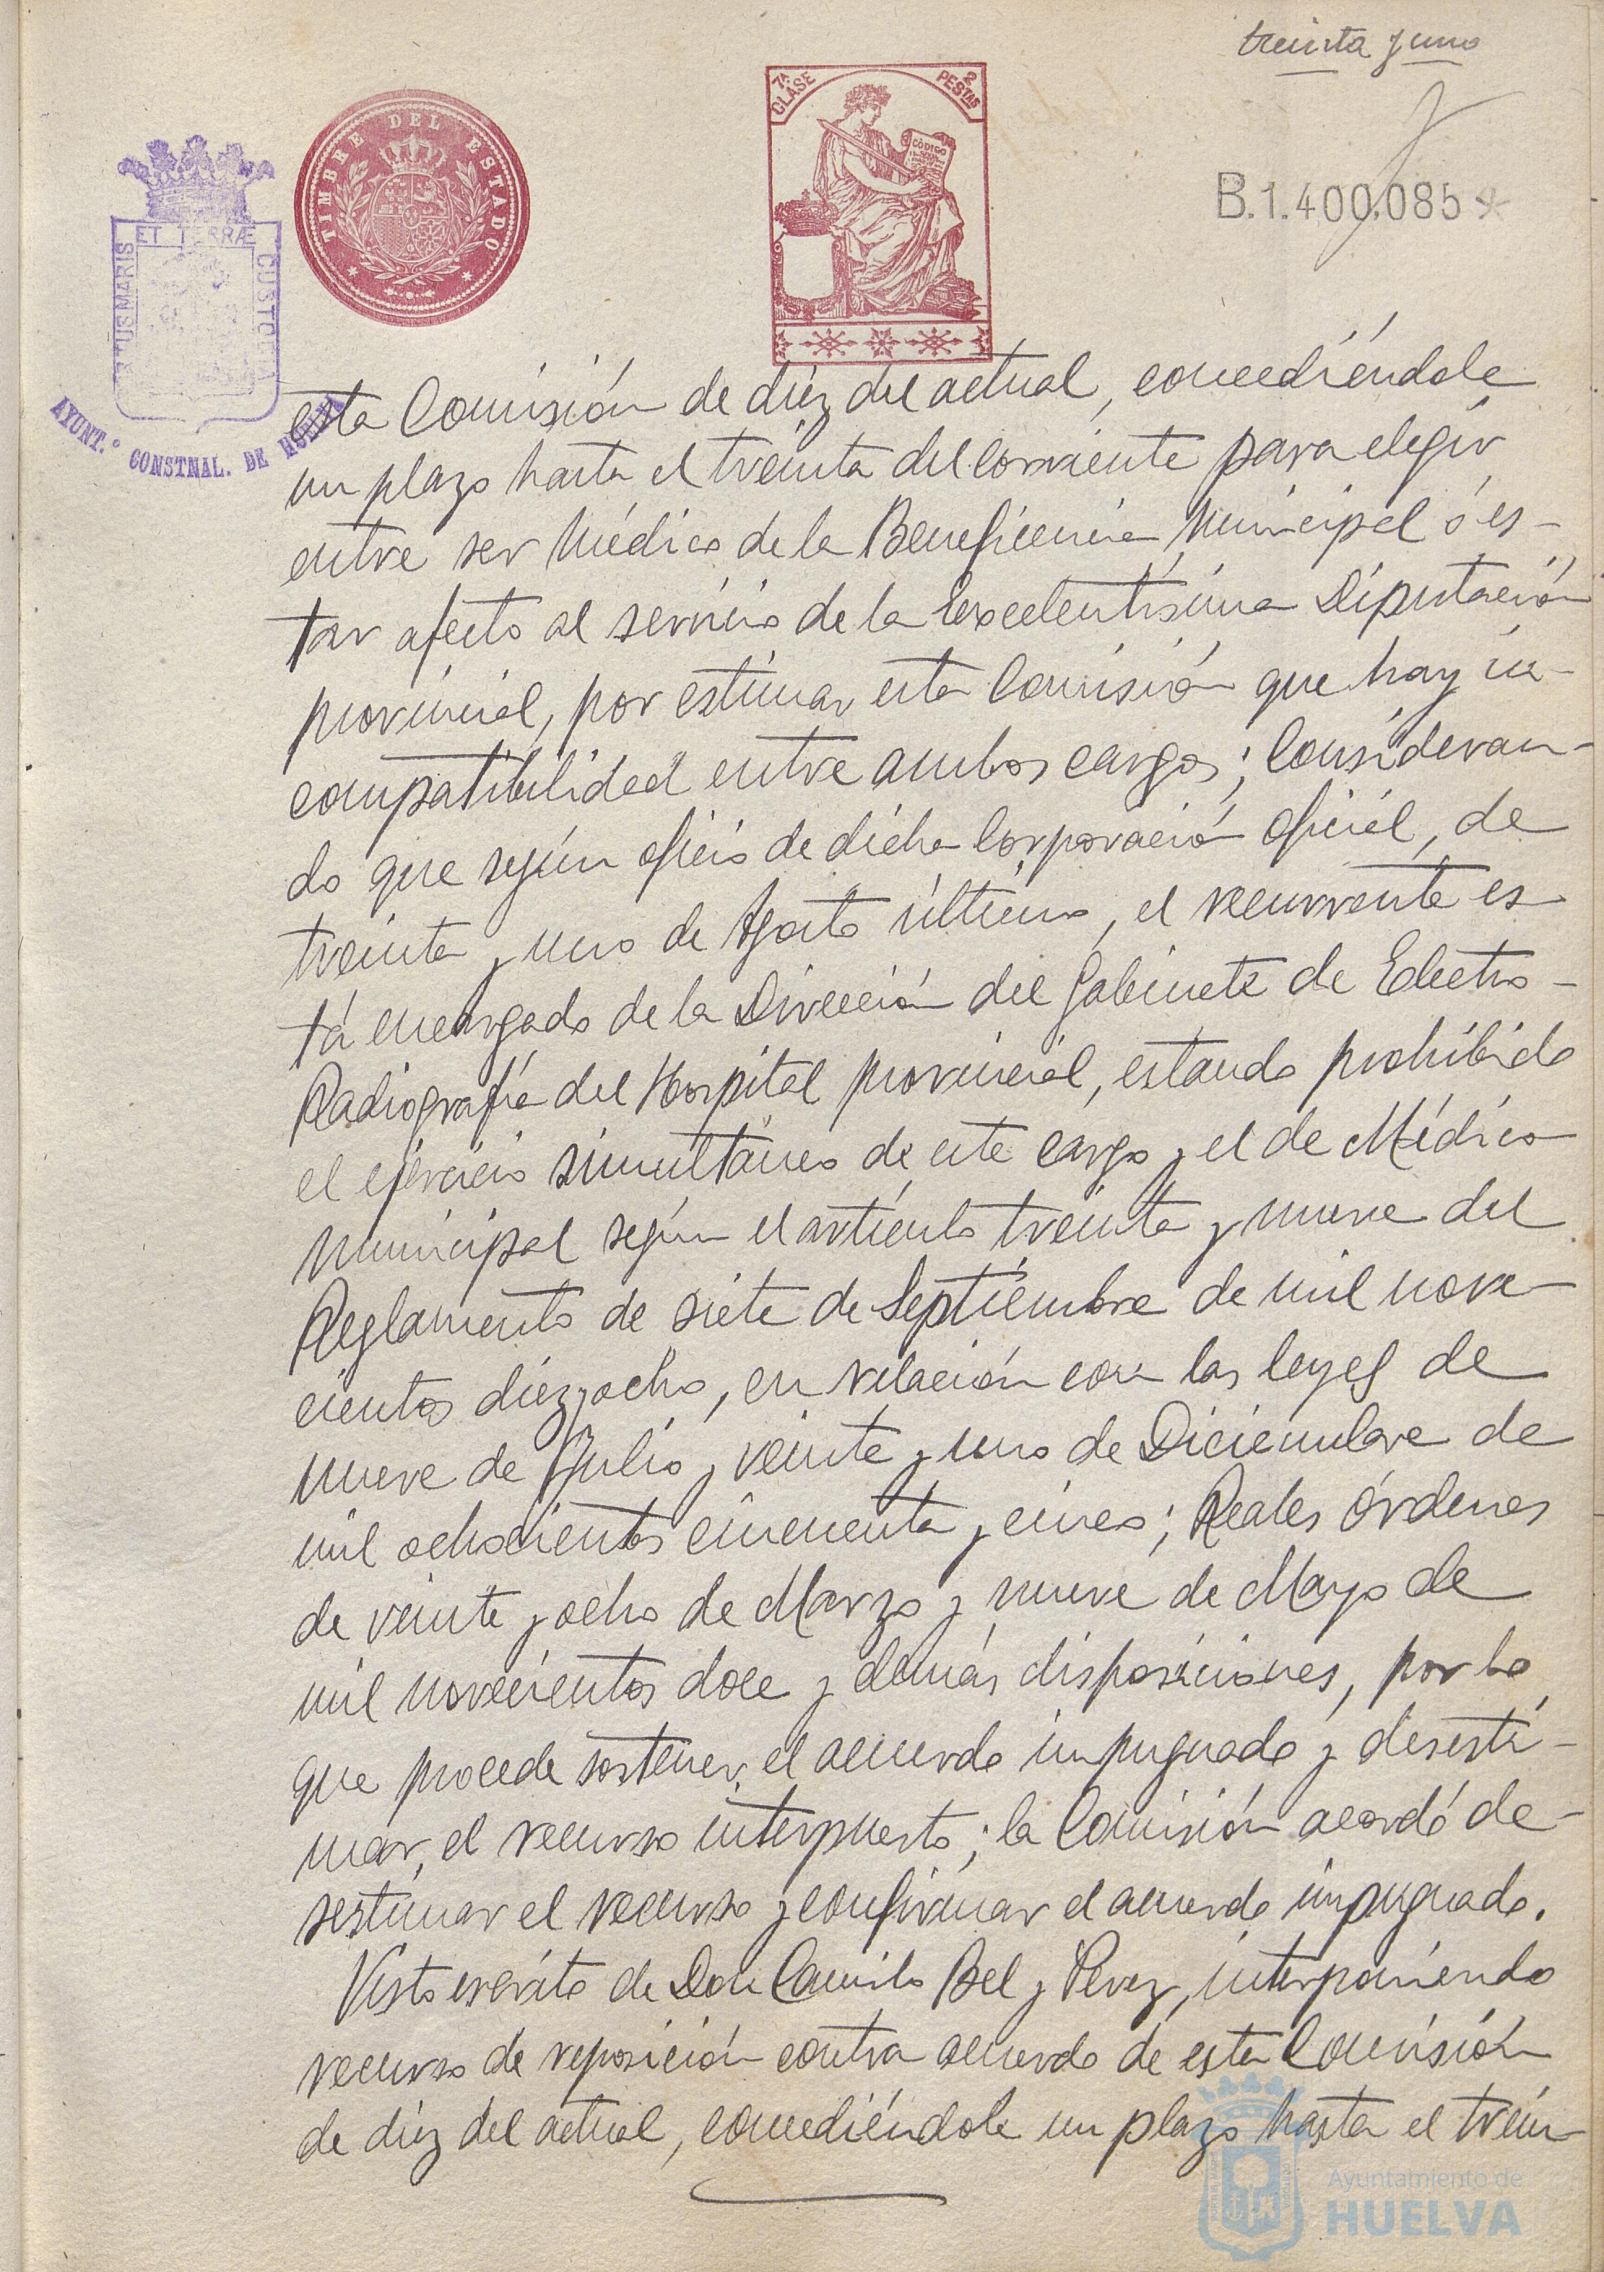 treinta y uno
7ª CLASE
2 PESTAS
TIMBRE DEL ESTADO
CÓDIGO
B.1.400.085*
PORTUS MARIS ET TERRÆ CUSTODIA
AYUNT.º CONSTNAL. DE HUELVA
esta Comisión de diez del actual, concediéndole
un plazo hasta el treinta del corriente para elegir
entre ser Médico de la Beneficencia Municipal ó es-
tar afecto al servicio de la Excelentísima Diputación
provincial, por estimar esta Comisión que hay in-
compatibilidad entre ambos cargos; Consideran-
do que según oficio de dicha Corporación oficial, de
treinta y uno de Agosto último, el recurrente es-
tá encargado de la Dirección del Gabinete de Electro-
Radiografía del Hospital provincial, estando prohibido
el ejercicio simultáneo de este cargo y el de Médico
Municipal según el artículo treinta y nueve del
Reglamento de siete de Septiembre de mil nove-
cientos diez y ocho, en relación con las leyes de
nueve de Julio y veinte y uno de Diciembre de
mil ochocientos cincuenta y cinco; Reales órdenes
de veinte y ocho de Marzo y nueve de Mayo de
mil novecientos doce y demás disposiciones, por lo
que procede sostener el acuerdo impugnado y desesti-
mar, el recurso interpuesto; la Comisión acordó de-
sestimar el recurso y confirmar el acuerdo impugnado.
Visto escrito de Don Camilo Bel y Perez, interponiendo
recurso de reposición contra acuerdo de esta Comisión
de diez del actual, concediéndole un plazo hasta el trein-
Ayuntamiento de
HUELVA